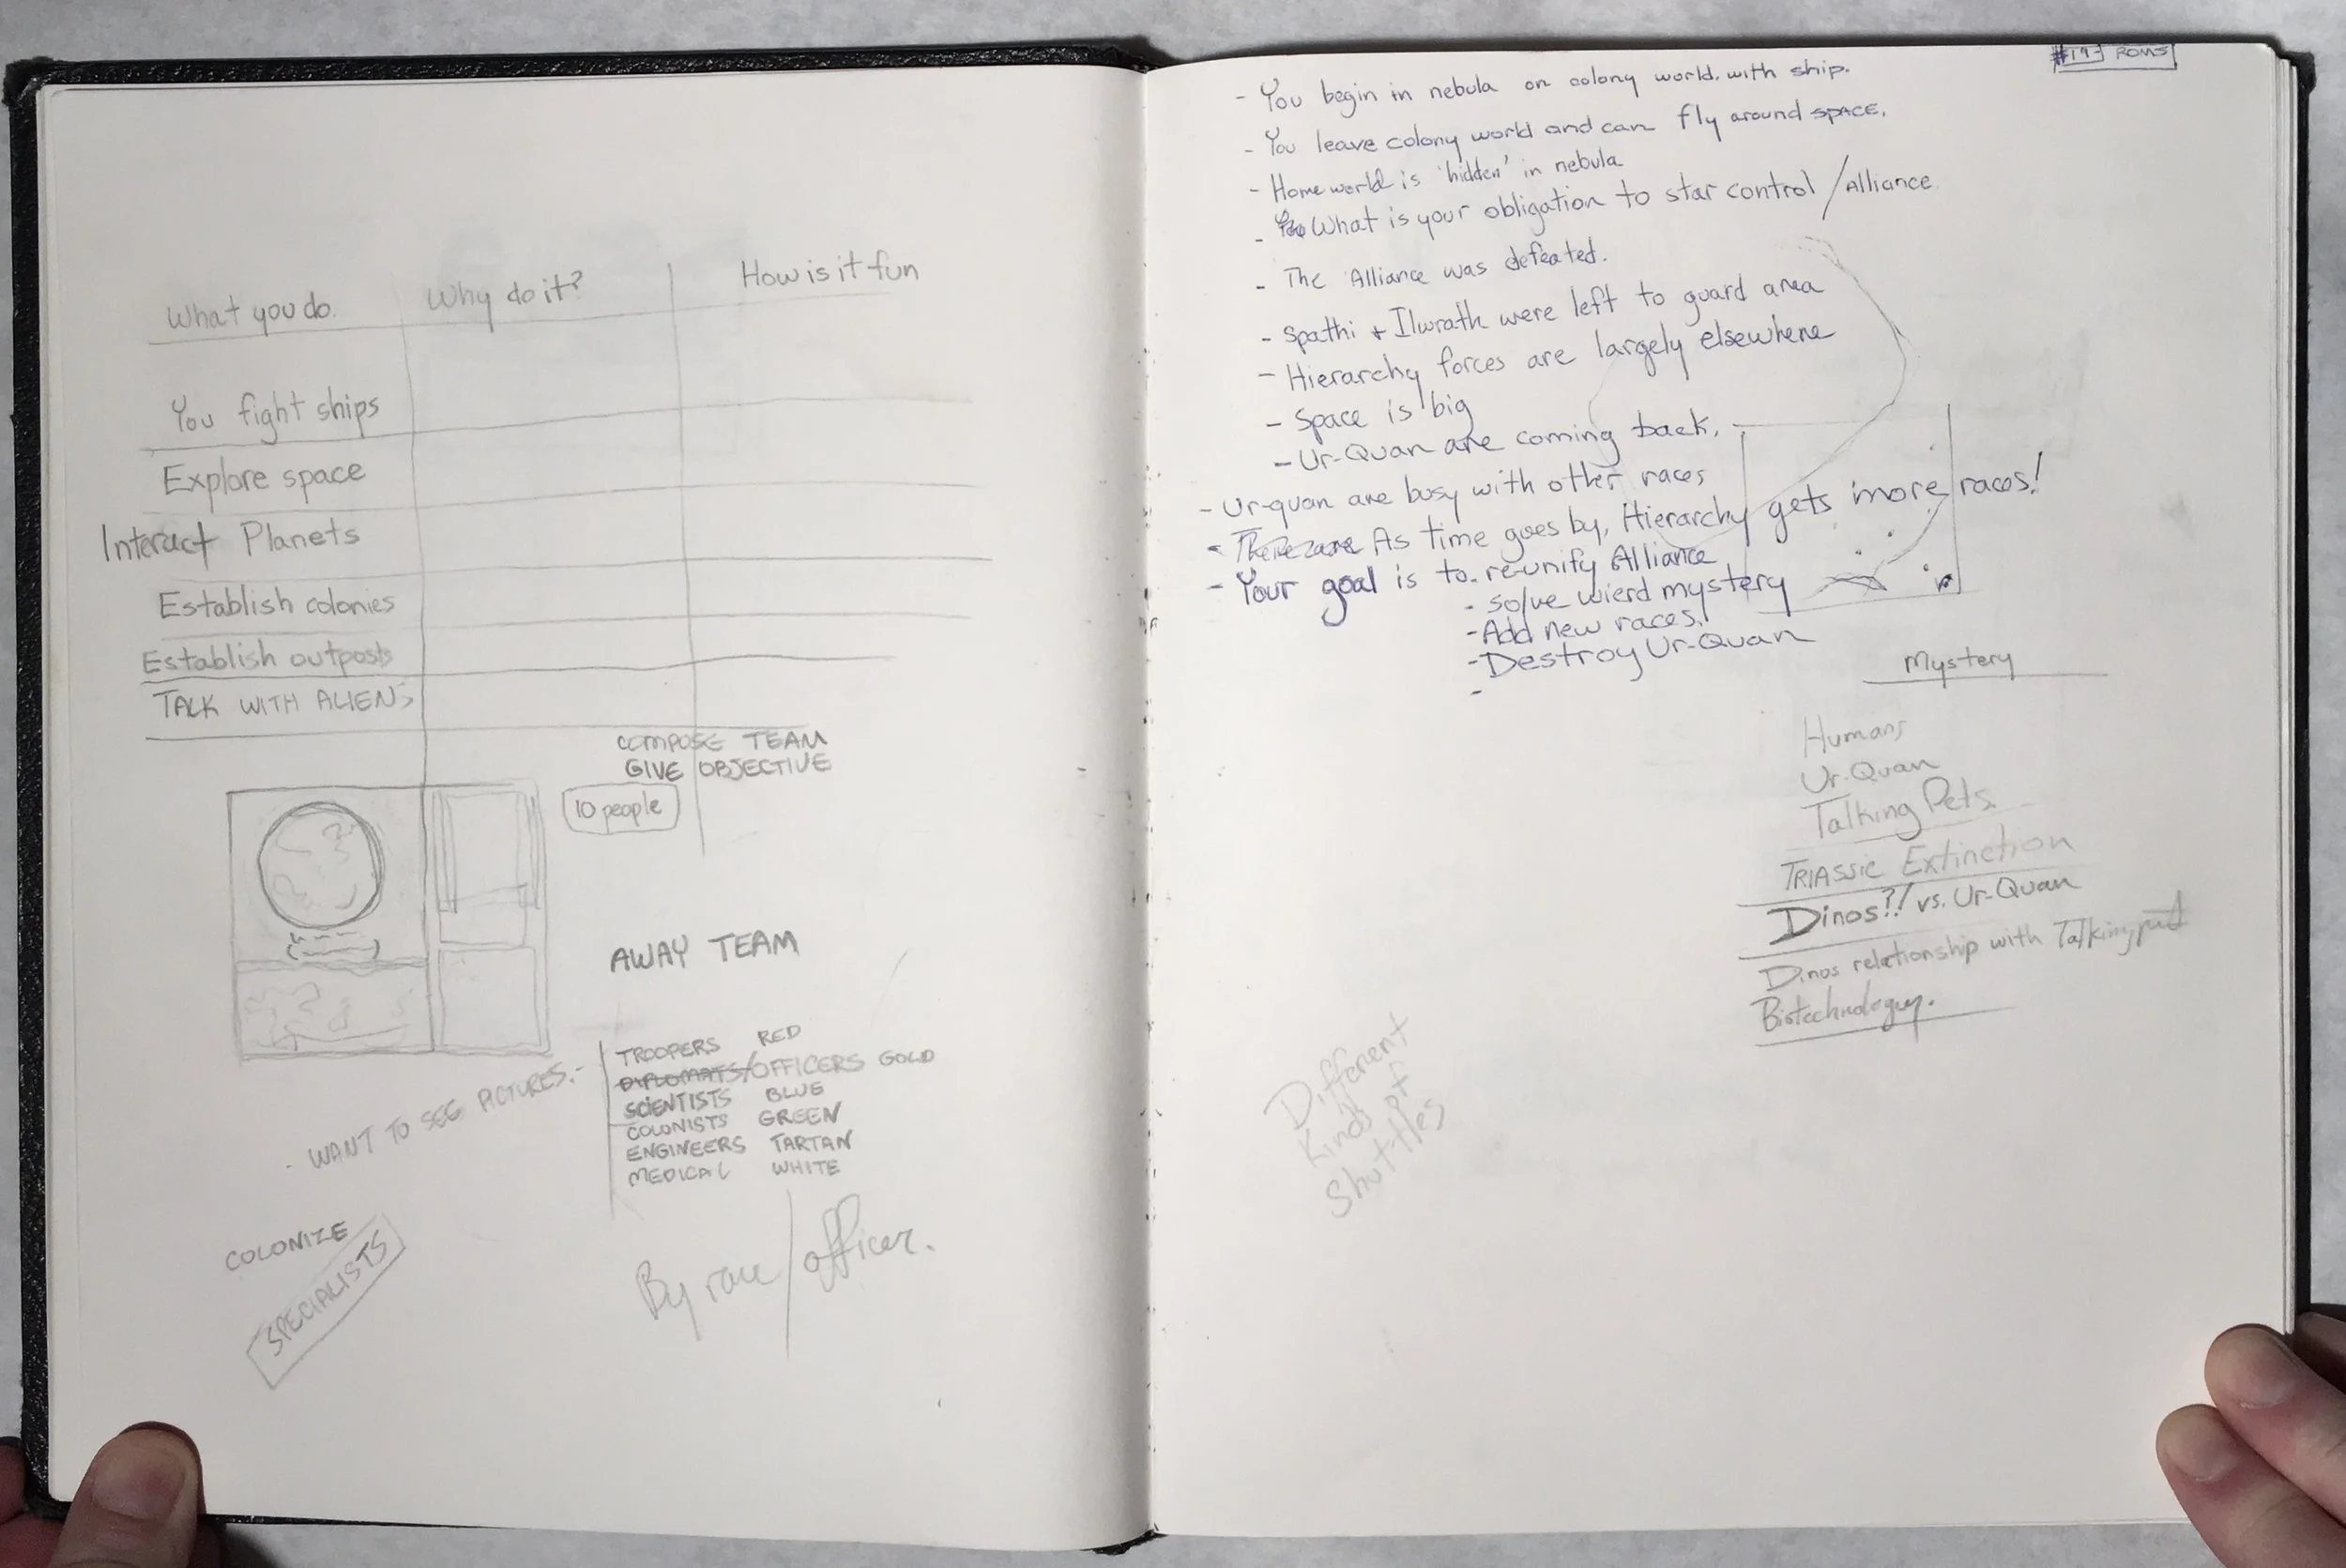 What you do. Why do it? How is it fun
You fight ships
Explore space
Interact Planets
Establish colonies
Establish outposts
TALK WITH ALIENS
COMPOSE TEAM
GIVE OBJECTIVE
10 people
AWAY TEAM
- WANT TO SEE PICTURES.-
TROOPERS RED
DIPLOMATS/OFFICERS GOLD
SCIENTISTS BLUE
COLONISTS GREEN
ENGINEERS TARTAN
MEDICAL WHITE
COLONIZE
SPECIALISTS
By race/officer.
- You begin in nebula on colony world. with ship.
- You leave colony world and can fly around space.
- Homeworld is 'hidden' in nebula
- You What is your obligation to star control / Alliance
- The Alliance was defeated.
- Spathi + Ilwrath were left to guard area
- Hierarchy forces are largely elsewhere
- Space is big
- Ur-Quan are coming back.
- Ur-quan are busy with other races
- There are As time goes by, Hierarchy gets more races!
- Your goal is to re-unify Alliance
- solve wierd mystery
- Add new races.
- Destroy Ur-Quan
-
Mystery
Humans
Ur-Quan
Talking Pets.
TRIASSIC Extinction
Dinos?! vs. Ur-Quan
Dinos relationship with Talking pet
Biotechnology.
Different
Kinds of
Shuttles